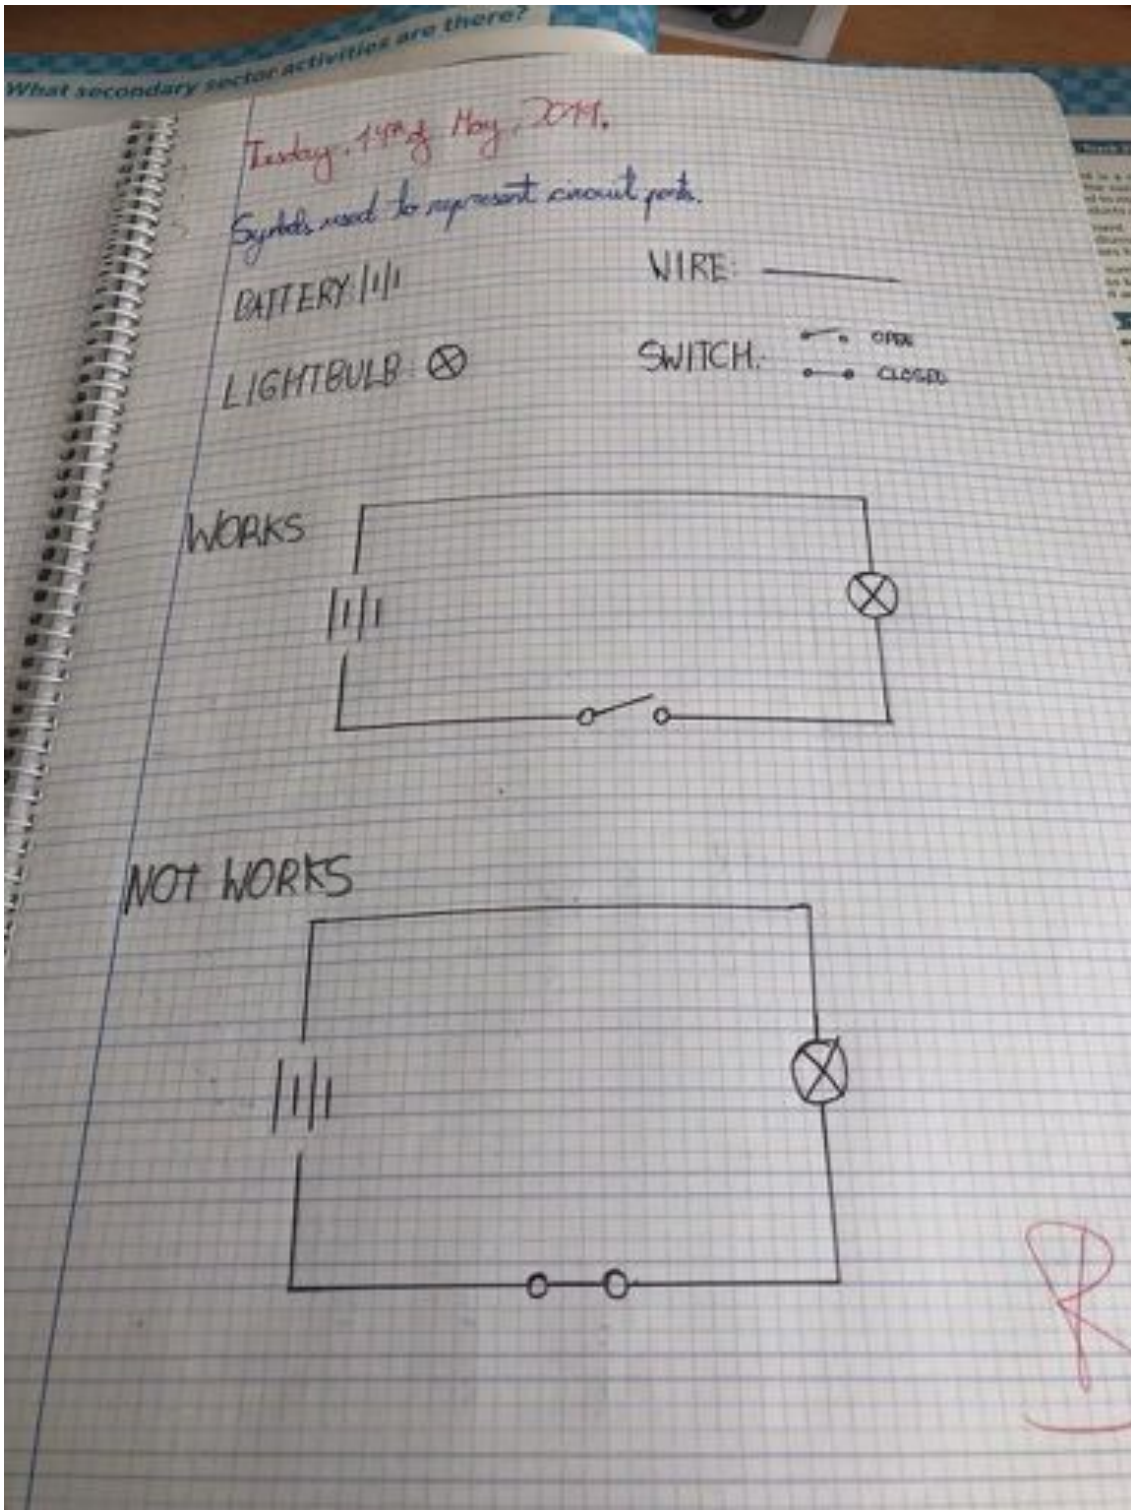 What secondary sector activities are there?
Tusday, 14th of May, 2019.
Symbols used to represent circuit parts.
BATTERY:
WIRE:
LIGHTBULB:
SWITCH:
OPEN
CLOSED
WORKS
NOT WORKS